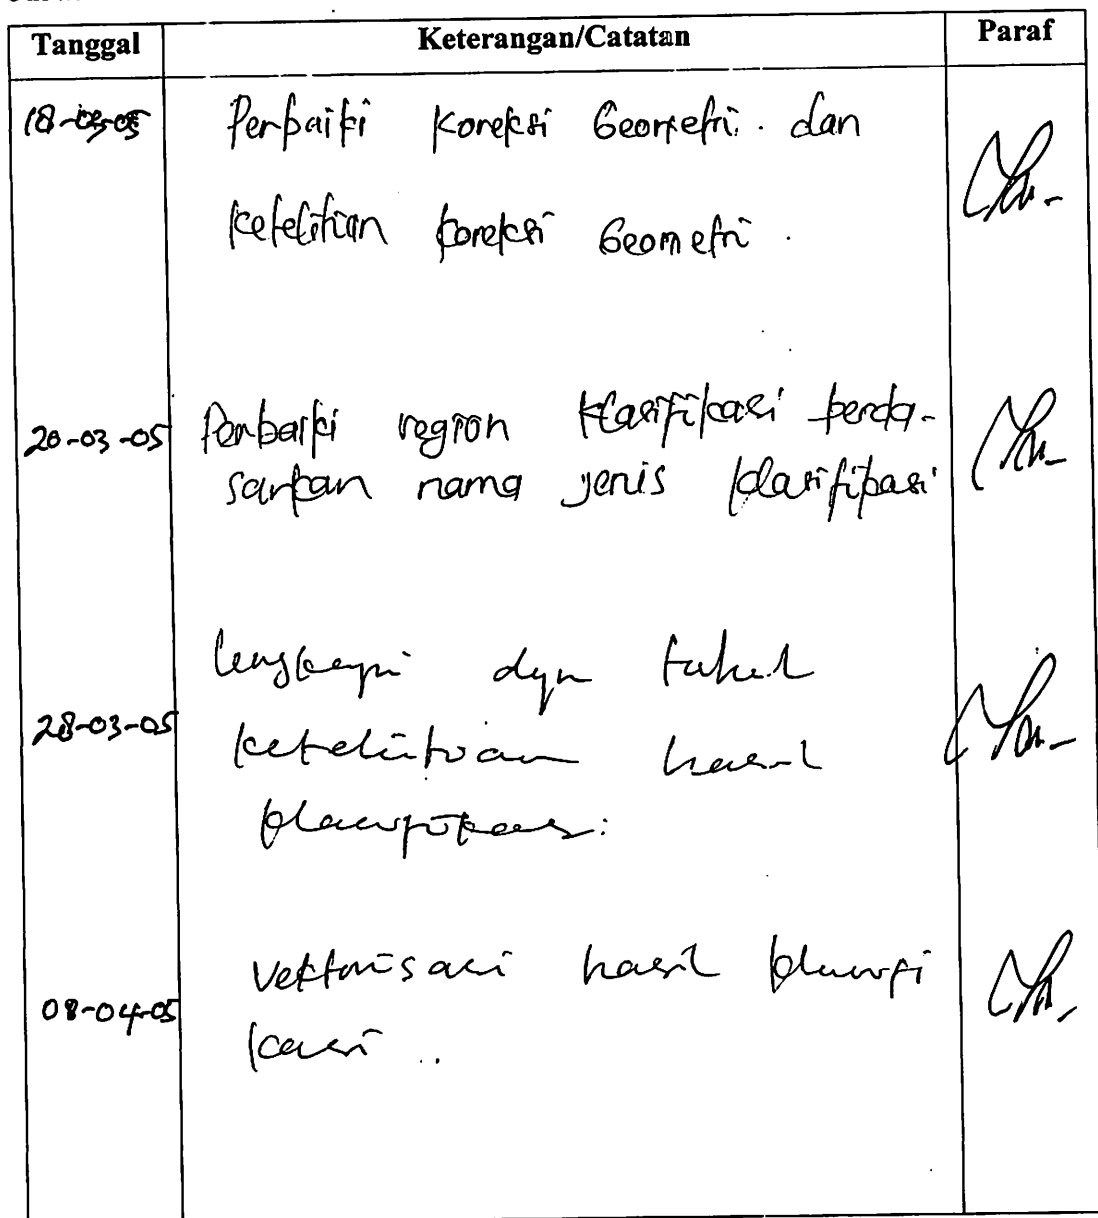 Tanggal Keterangan/Catatan Paraf
18-03-05 Perbaiki Koreksi Geometri. dan
ketelitian koreksi Geometri.
20-03-05 Perbaiki region klasifikasi berda-
sarkan nama jenis klasifikasi
lengkapi dgn tabel
28-03-05 ketelitian hasil
klasifikasi.
vektorisasi hasil klasifi
08-04-05 kasi ..